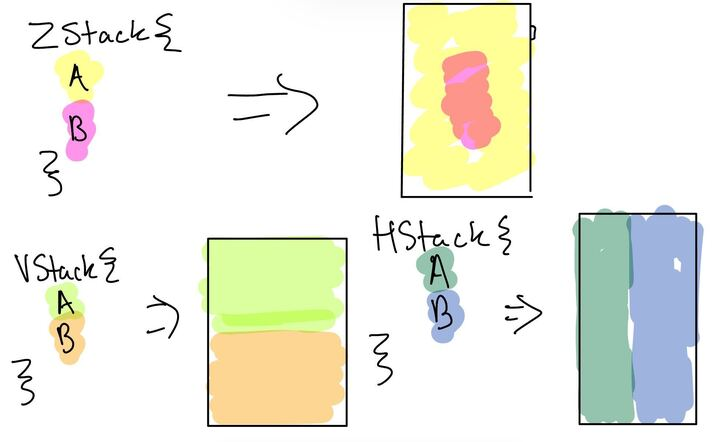 ZStack{
A
B
}
VStack{
A
B
}
HStack{
A
B
}